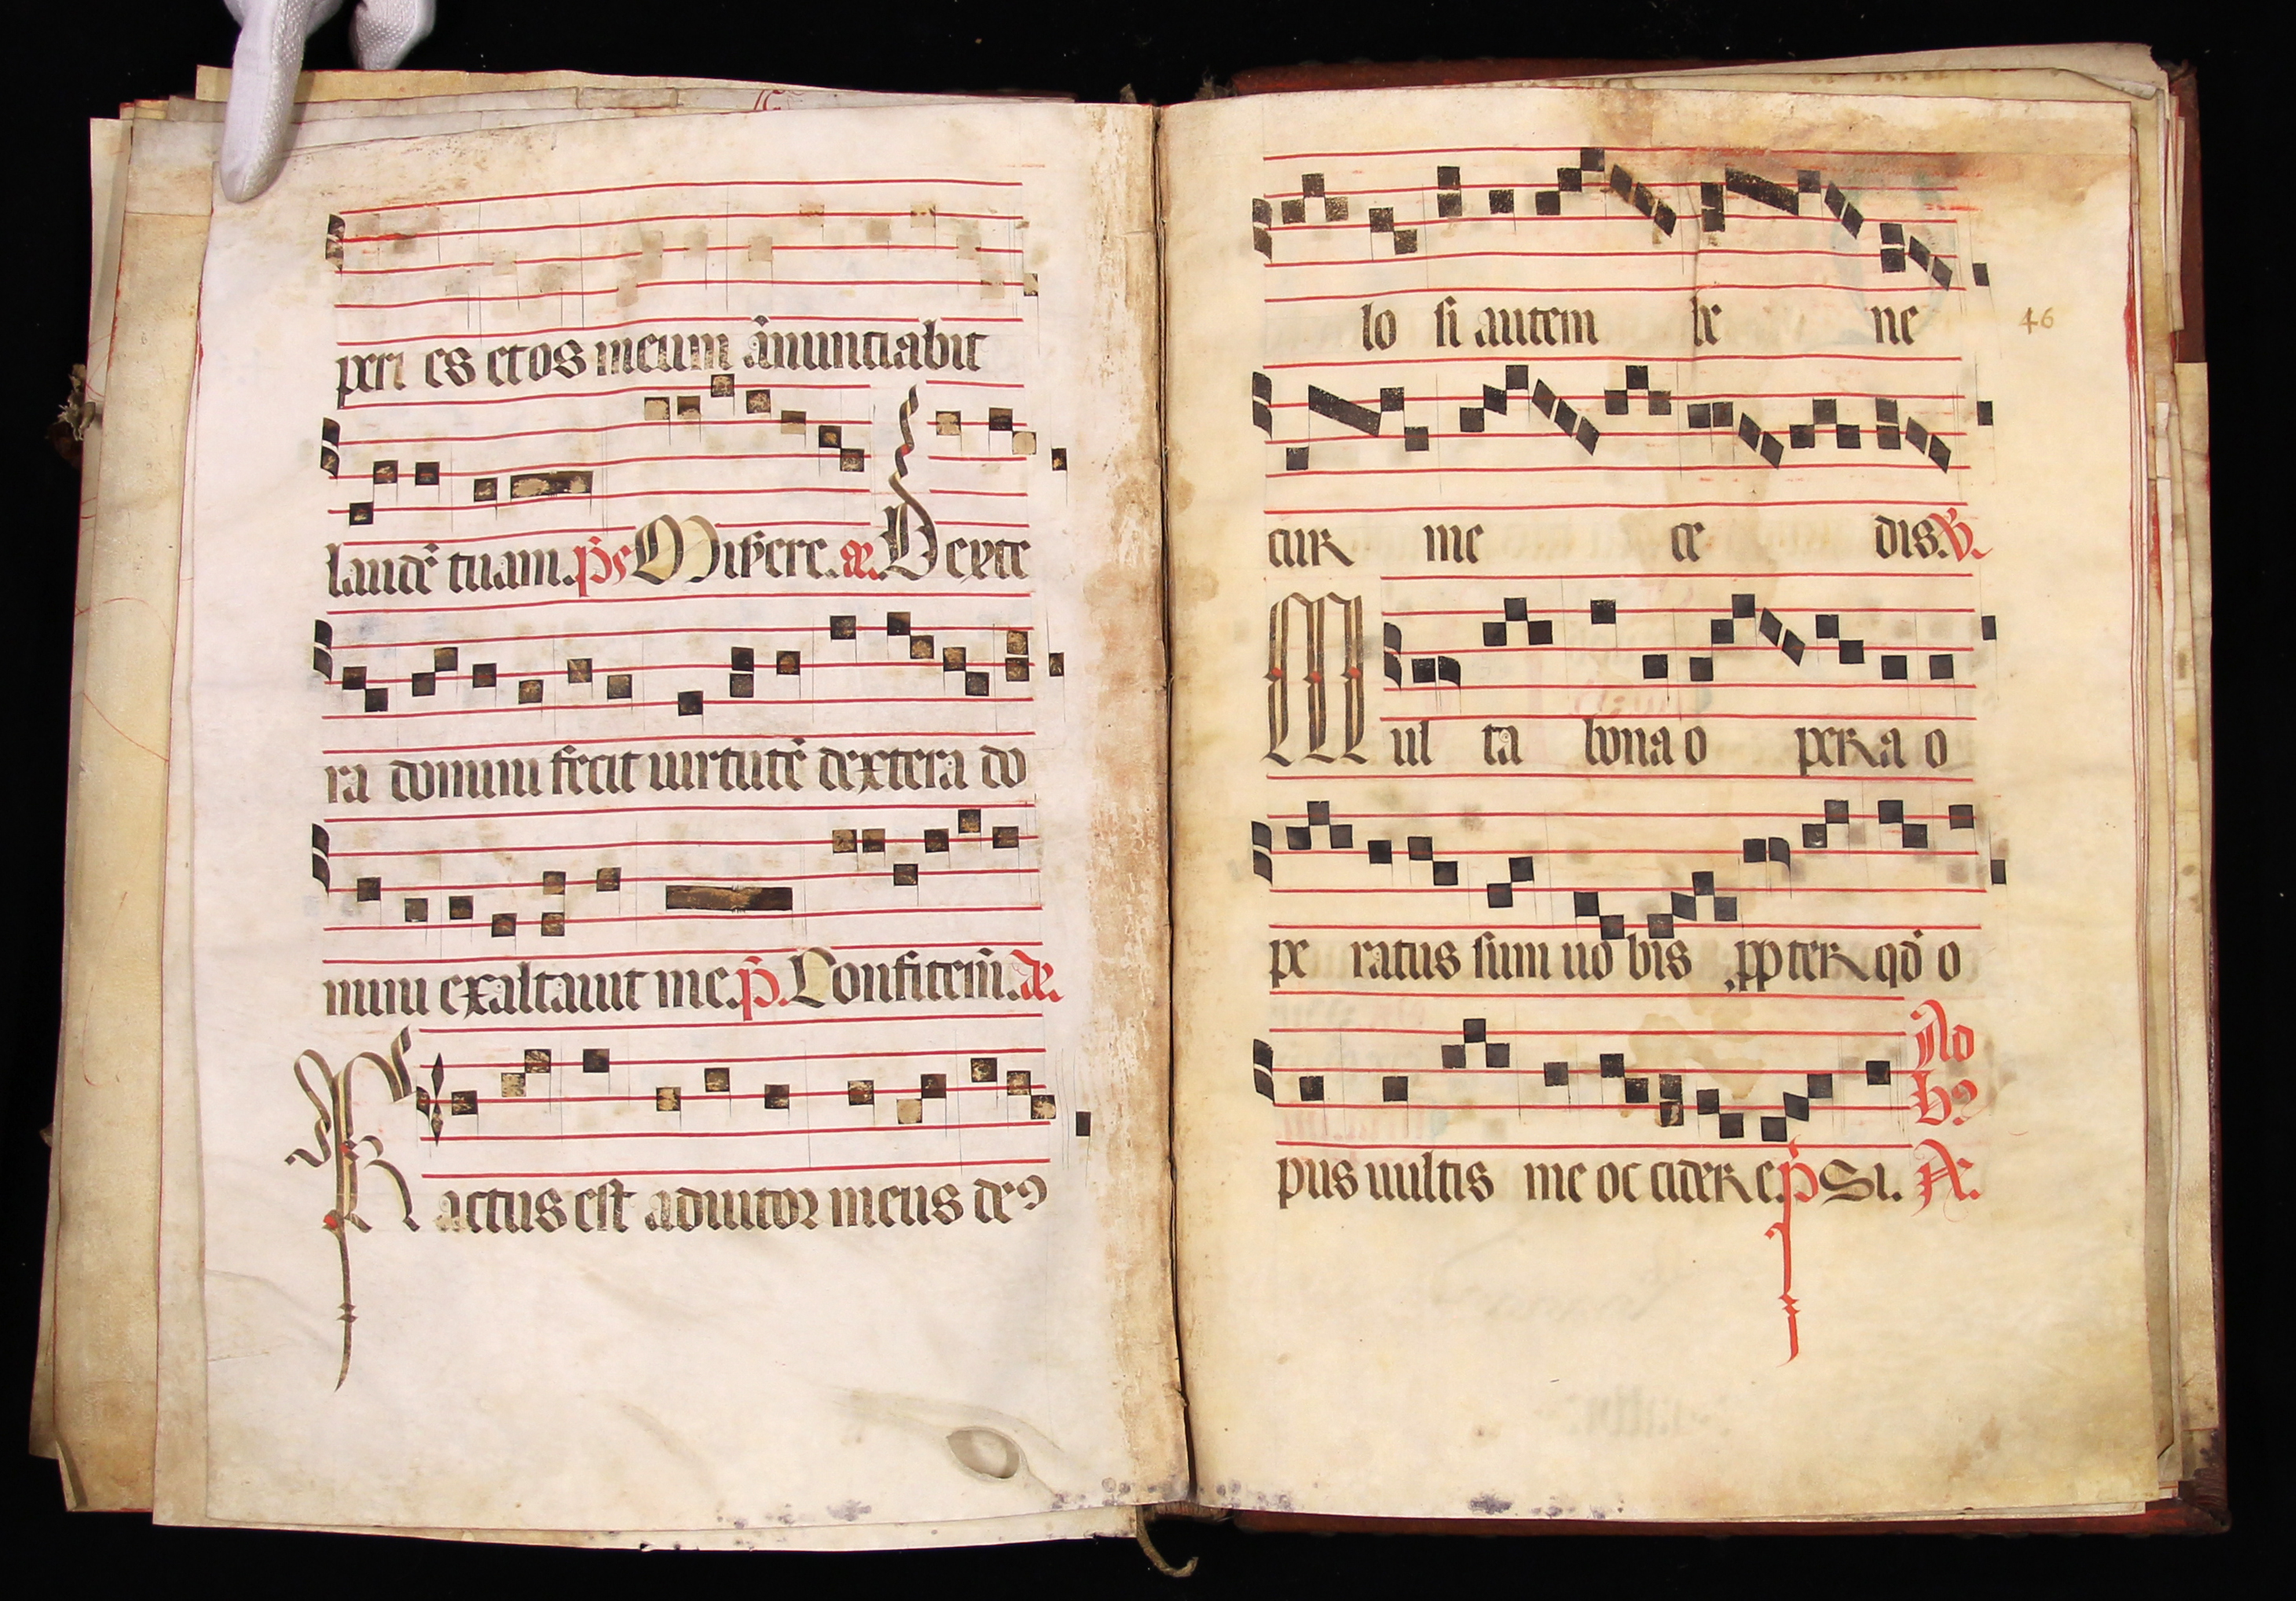 peri es et os meum ānunciabit
laudē tuam. ps Miserere. ae. Dexte
ra domini fecit uirtutē dextera do
mini exaltauit me. p. Confitemī. ae.
Factus est adiutor meus de9
lo si autem be ne
46
cur me ce dis. V.
Mul ta bona o pera o
pe ratus sum uo bis ppter qd̄ o
No
b9
pus uultis me oc cidere. p Si. ae.